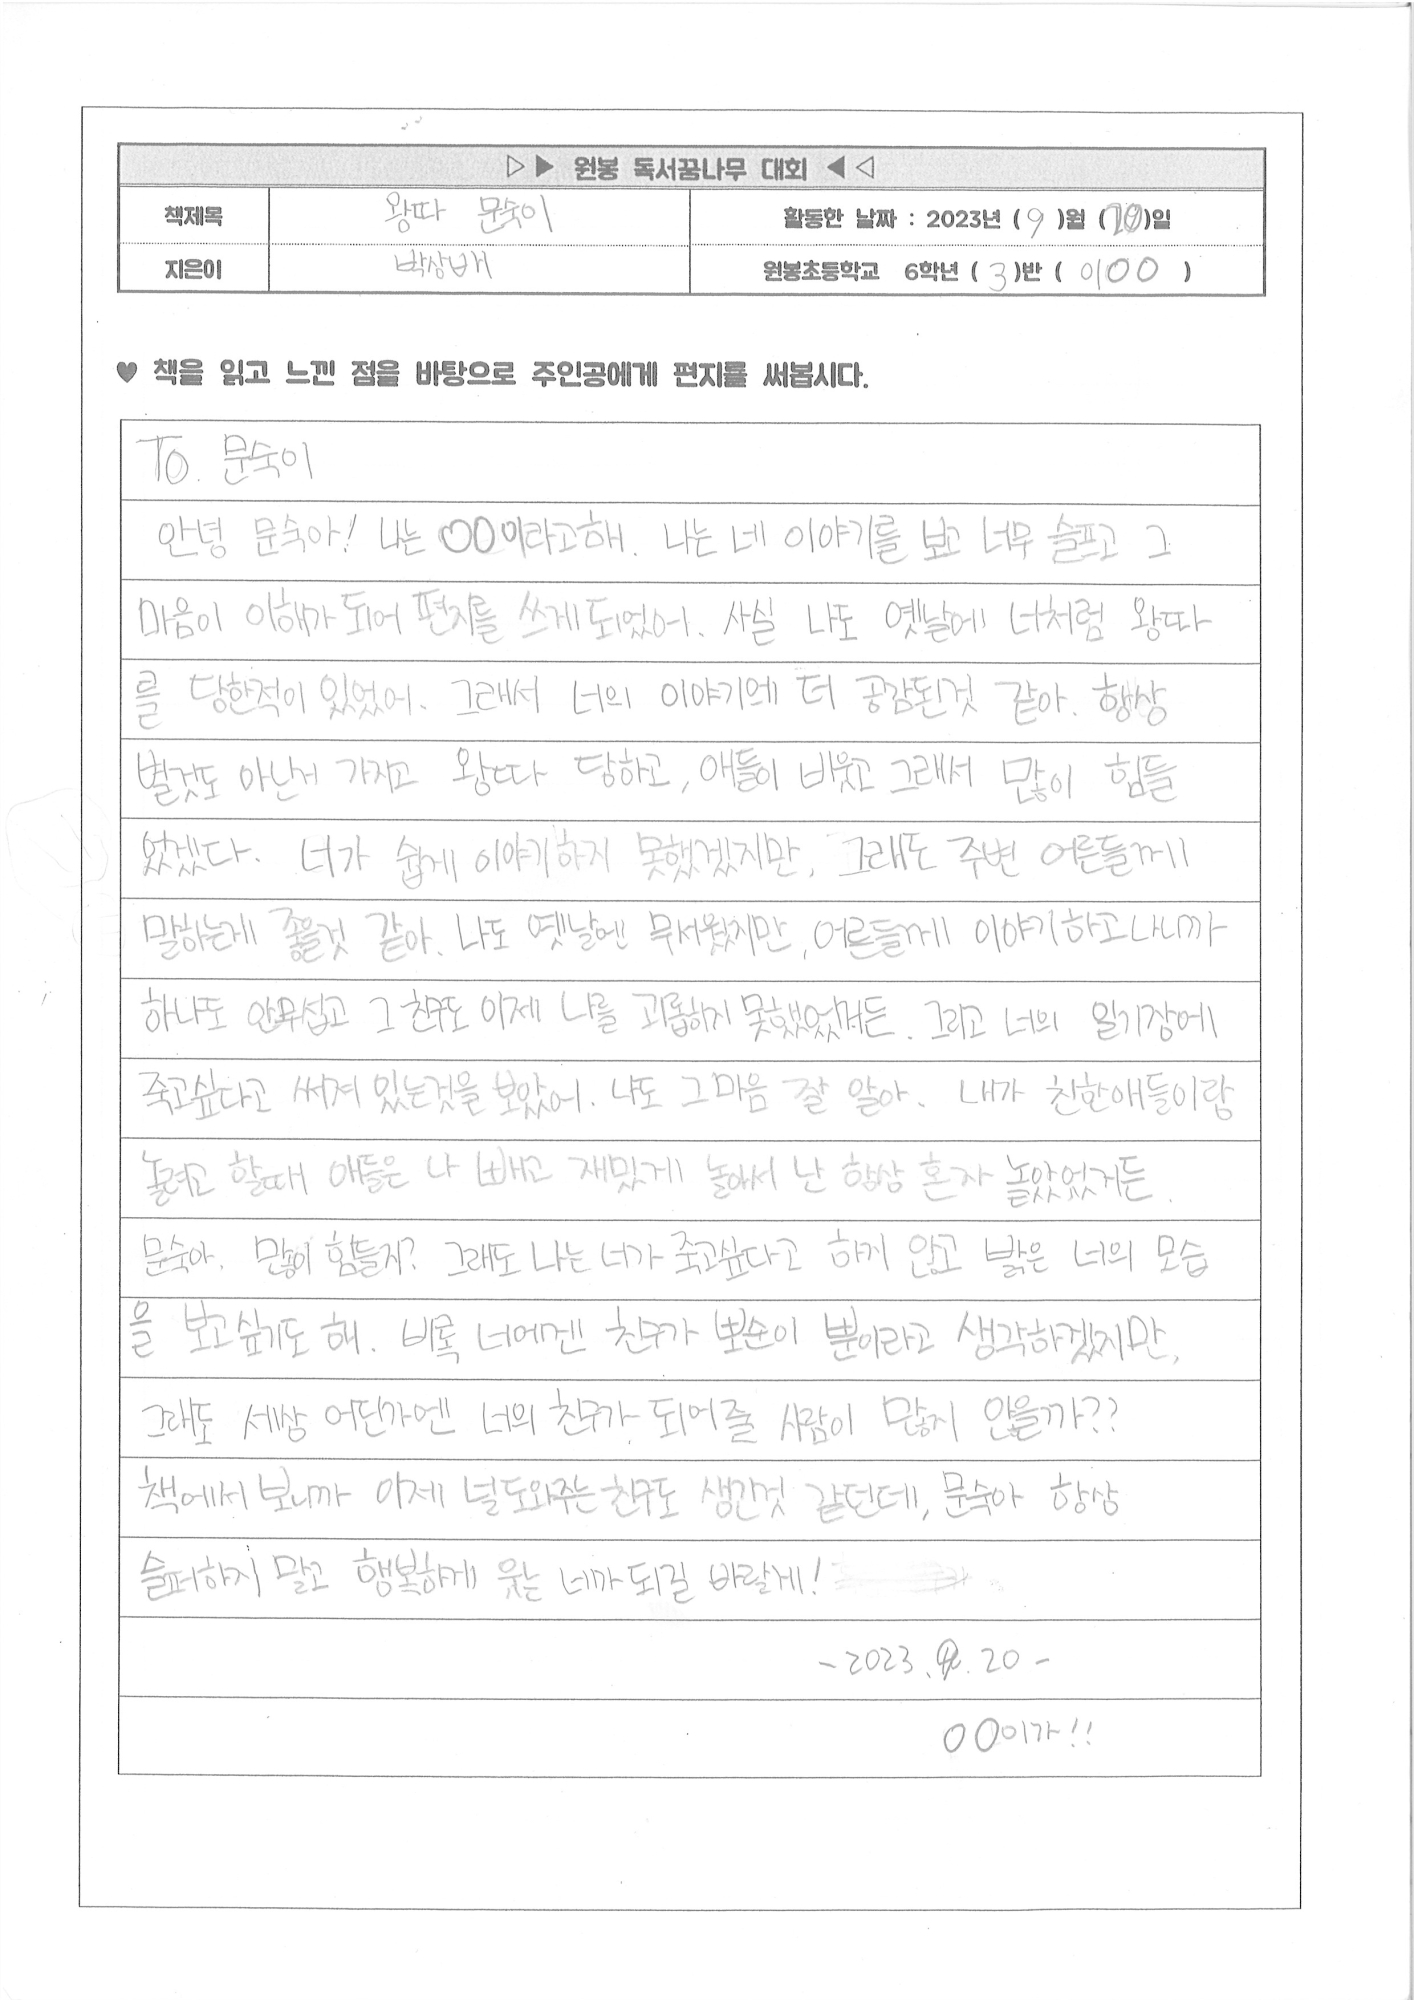 ▷▶ 원봉 독서꿈나무 대회 ◀◁
책제목 왕따 문숙이 활동한 날짜 : 2023년 (9)월 (20)일
지은이 박상배 원봉초등학교 6학년 (3)반 (이OO)
♥ 책을 읽고 느낀 점을 바탕으로 주인공에게 편지를 써봅시다.
To. 문숙이
안녕 문숙아! 나는 OO이라고해. 나는 네 이야기를 보고 너무 슬프고 그
마음이 이해가 되어 편지를 쓰게되었어. 사실 나도 옛날에 너처럼 왕따
를 당한적이 있었어. 그래서 너의 이야기에 더 공감된것 같아. 항상
별것도 아닌거 가지고 왕따 당하고, 애들이 비웃고 그래서 많이 힘들
었겠다. 너가 쉽게 이야기하지 못했겠지만, 그래도 주변 어른들께
말하는게 좋을것 같아. 나도 옛날엔 무서웠지만, 어른들께 이야기하고나니까
하나도 안무섭고 그 친구도 이제 나를 괴롭히지 못했었거든. 그리고 너의 일기장에
죽고싶다고 써져 있는것을 보았어. 나도 그마음 잘 알아. 내가 친한애들이랑
놀려고 할때 애들은 나 빼고 재밌게 놀아서 난 항상 혼자 놀았었거든.
문숙아. 많이 힘들지? 그래도 나는 너가 죽고싶다고 하지 않고 밝은 너의 모습
을 보고싶기도 해. 비록 너에겐 친구가 뽀순이 뿐이라고 생각하겠지만,
그래도 세상 어딘가엔 너의 친구가 되어줄 사람이 많지 않을까??
책에서 보니까 이제 널도와주는 친구도 생긴것 같던데, 문숙아 항상
슬퍼하지 말고 행복하게 웃는 네가 되길 바랄게!
-2023. 9. 20-
OO이가!!